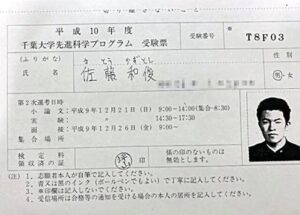 平成10年度
千葉大学先進科学プログラム 受験票
受験番号
※
T8F03
(ふりがな)
さとう かずとし
氏名
佐藤和俊
性別
男・女
第2次選考日時
小論文:平成9年12月21日(日) 9:00-14:00(集合-8:30)
実験 〃 14:30-17:30
面接:平成9年12月26日(金) 9:00-
集合場所
検定料
領収済の証
印
係の印のないものは
無効とします。
(注) 1. 志願者本人が自筆で記入してください。
2. 青又は黒のインク(ボールペンでもよい)で丁寧に記入してください。
3. ※印欄は記入しないでください。
4. 受験場所は合格等の通知を受ける場合の本人の居所を記入してください。